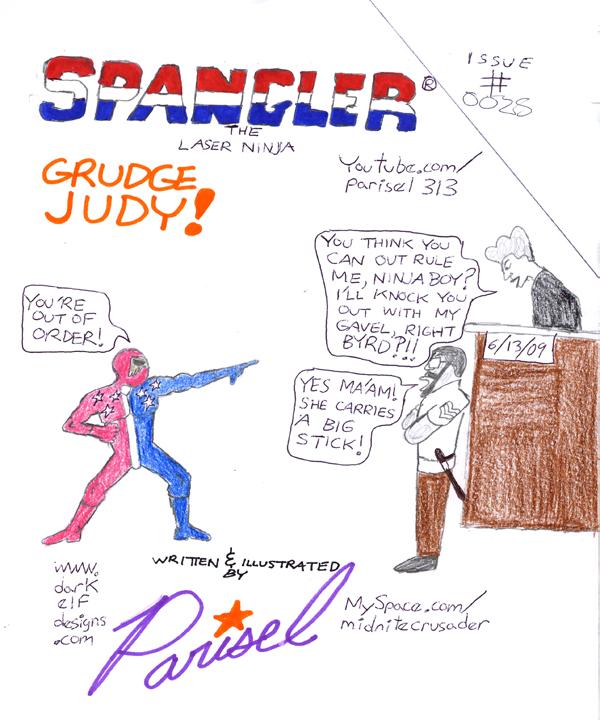 SPANGLER®
THE
LASER NINJA
ISSUE
#
0028
GRUDGE
JUDY!
Youtube.com/
parisel 313
YOU THINK YOU
CAN OUT RULE
ME, NINJA BOY?
I'LL KNOCK YOU
OUT WITH MY
GAVEL, RIGHT
BYRD?!!
YOU'RE
OUT OF
ORDER!
6/13/09
YES MA'AM!
SHE CARRIES
A BIG
STICK!
WRITTEN & ILLUSTRATED
BY
Parisel
www.
dark
elf
designs
.com
MySpace.com/
midnitecrusader